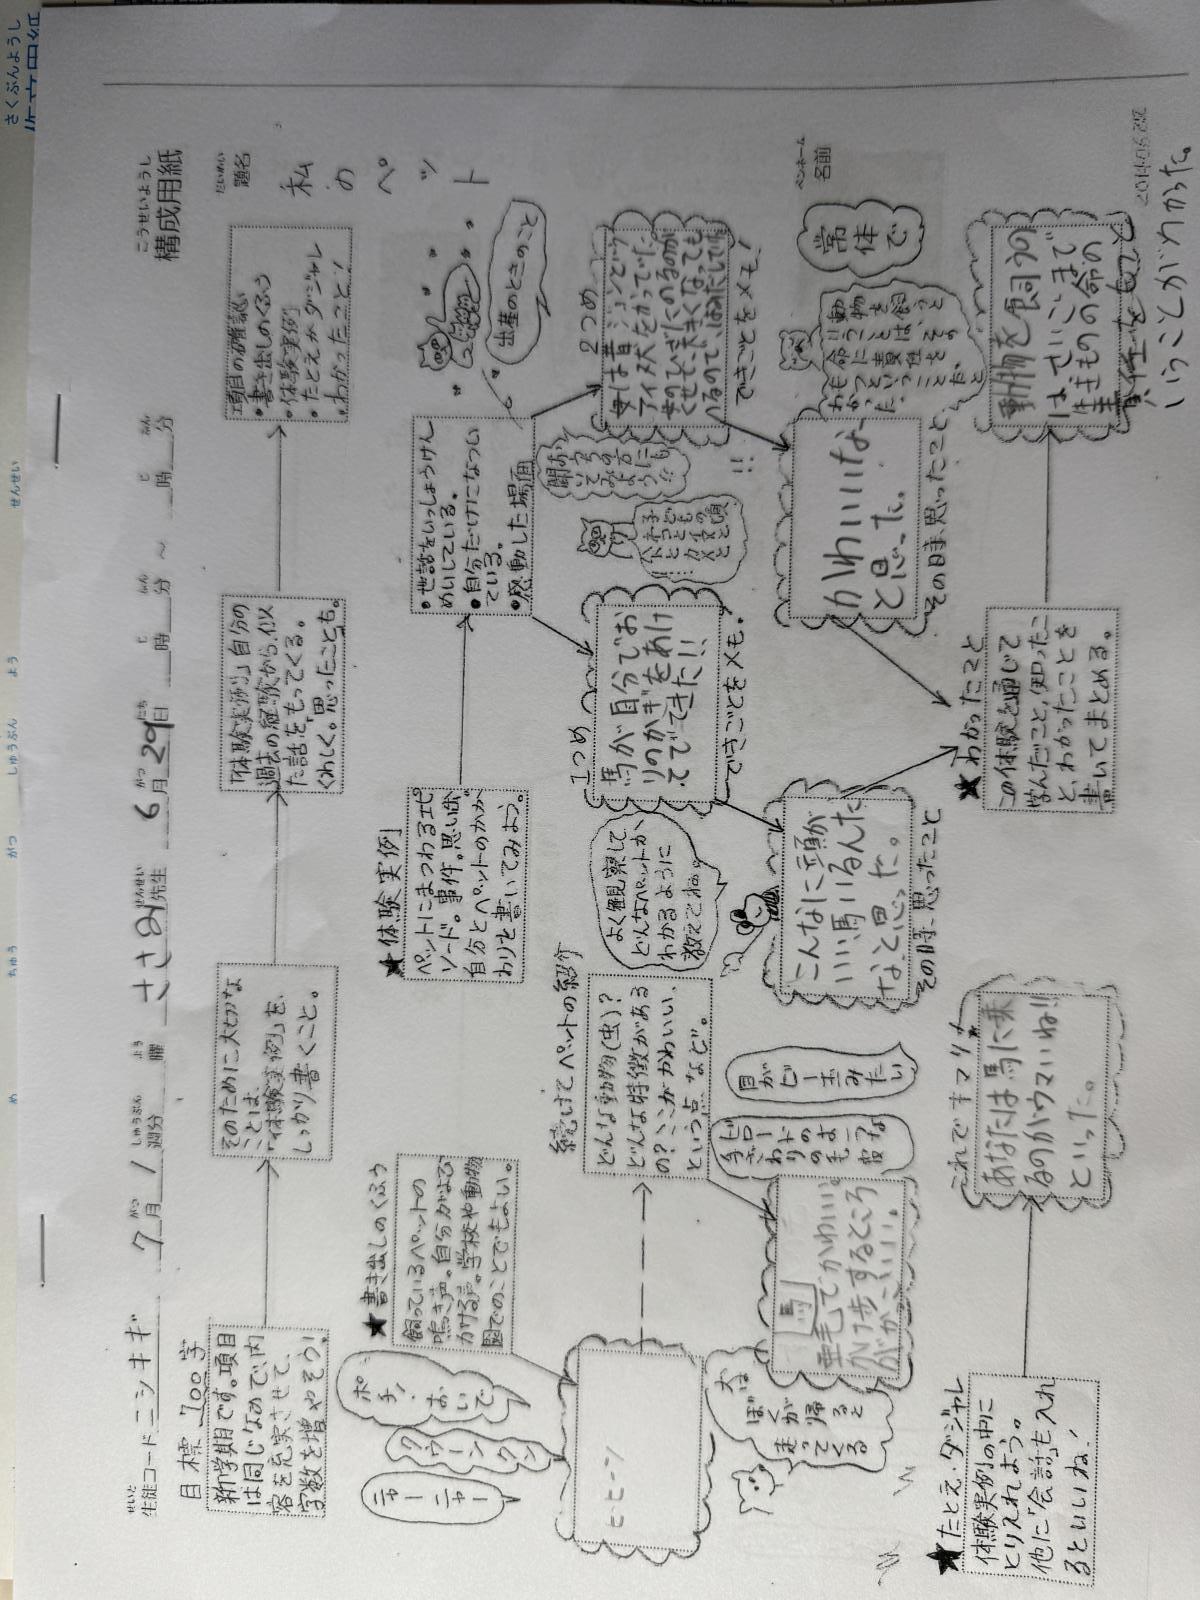 さくぶんようし
こうせいようし
構成用紙
せいと
生徒コード ニシキギ
7月1週分
がつ
しゅうぶん
よう
曜
せんせい
ささみ先生
6月29日
がつ
にち
時 分 ～ 時 分
じ
ふん
じ
ふん
だいめい
題名
私のペット
目標 700字
新学期です。項目
は同じなので、内
容を充実させて、
字数を増やそう！
そのために大切な
ことは、
「体験実例」を、
しっかり書くこと。
「体験実例」自分の
過去の経験から、似
た話をもってくる。
くわしく。思ったことも。
項目の確認
・書き出しのくふう
・体験実例
・たとえかダジャレ
・わかったこと！
★書き出しのくふう
飼っているペットの
鳴き声。自分がよび
かける声。学校や動物
園でのことでもよい。
ポチ！
おいで
クウーン
クン
ニャー
ニャー
ヒヒーン
続けてペットの紹介
どんな動物（虫）？
どんな特徴がある
の？ここがかわいい、
という点 など。
よく観察して、
どんなペットか、
わかるように
教えてね。
目が
ビー玉みたい
犬は
ぼくが
帰ると
走ってくる
馬
亜毛でかわいい。
かけ歩するところ
がかっこいい。
★体験実例
ペットにまつわるエピ
ソード。事件。思い出
自分とペットのかか
わりを書いてみよう。
・世話をいっしょうけん
めいしている。
・自分だけになつい
ている。
・感動した場面
出産のときのこと
1つめ
馬が自分でお
りのかぎをあけ
てでてきた!!
できごとをメモ。
こんなに頭が
いい馬いるんだ
な、と思った。
その時、思ったこと
おうちの方にも
聞いてみよう!!
2つめ
母は昔ジョンという
アイヌ犬をかっていた。
母のひざにのるのが
くせで、大きくなっても
のるので、はみだしてい
できごとをメモ！
かわいいな、
と思った。
その時、思ったこと
★たとえ・ダジャレ
体験実例の中に
とりいれよう。
他に「会話」も入れ
るといいね！
これでキマリ！
あなたは馬に乗
るのがウマいね!!
といった。
★わかったこと
この体験を通じて
学んだこと、知ったこ
と、わかったことを
書いてまとめる。
動物を飼うと
いうことは、そ
の命に責任を
もつということだと
わかった。
ペンネーム
名前
常体で
動物を飼うの
は、さいごまで
生きものの命の
責任をもつと
いうことがわかった。